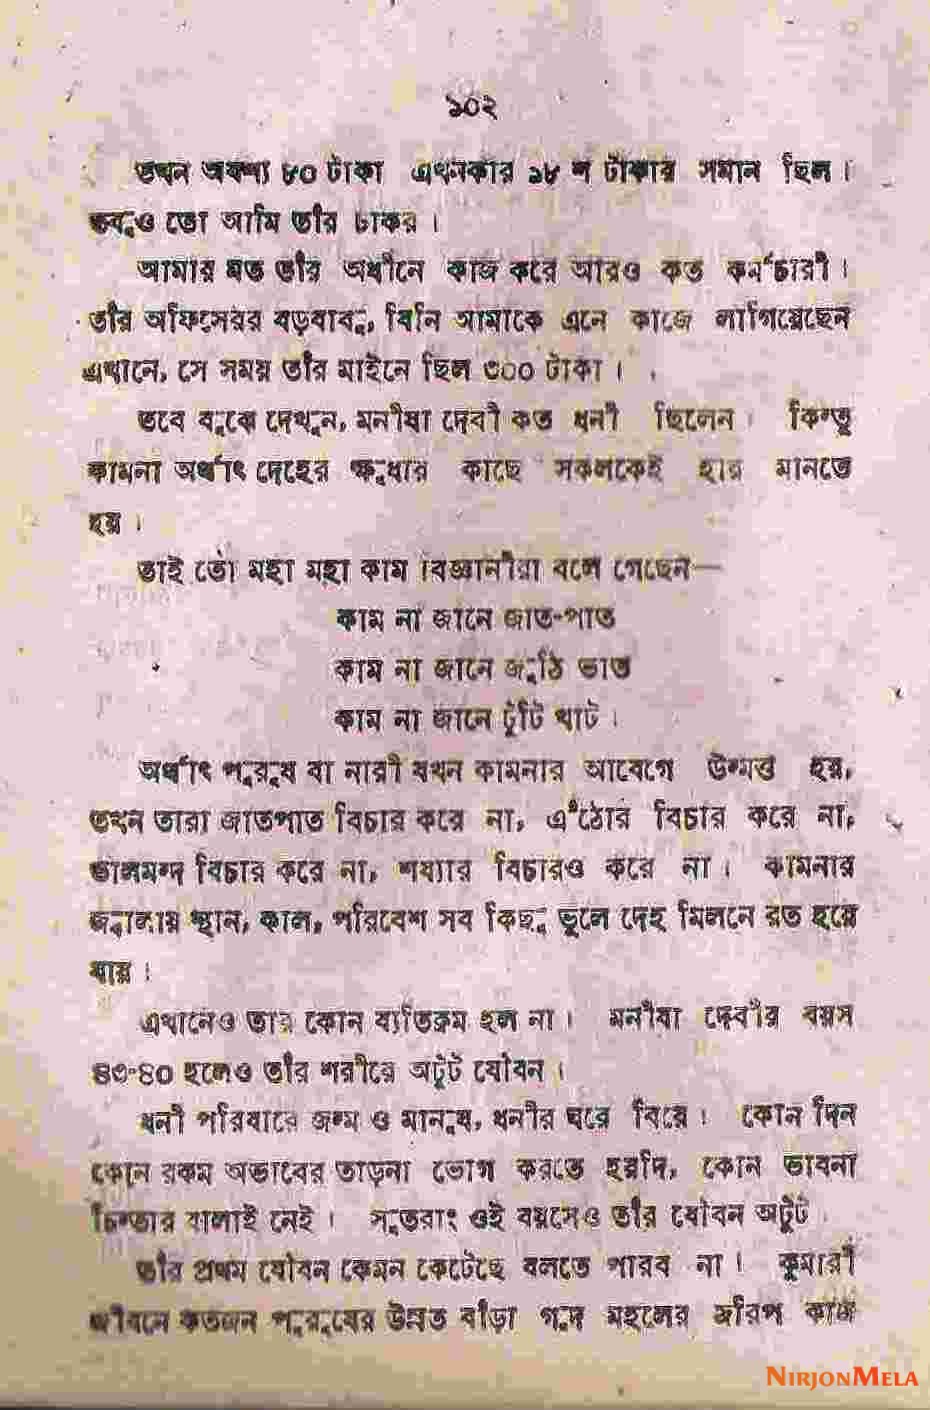 ১০২
তখন অবশ্য ৮০ টাকা এখনকার ১৮ শ টাকার সমান ছিল।
তবুও তো আমি তাঁর চাকর।
আমার মত তাঁর অধীনে কাজ করে আরও কত কর্মচারী।
তাঁর অফিসের বড়বাবু, যিনি আমাকে এনে কাজে লাগিয়েছেন
এখানে, সে সময় তাঁর মাইনে ছিল ৩০০ টাকা।
তবে বুঝে দেখুন, মনীষা দেবী কত ধনী ছিলেন। কিন্তু
কামনা অর্থাৎ দেহের ক্ষুধার কাছে সকলকেই হার মানতে
হয়।
তাই তো মহা মহা কাম বিজ্ঞানীরা বলে গেছেন—
কাম না জানে জাত-পাত
কাম না জানে জুঠি ভাত
কাম না জানে টুটি খাট।
অর্থাৎ পুরুষ বা নারী যখন কামনার আবেগে উন্মত্ত হয়,
তখন তারা জাতপাত বিচার করে না, এঁঠোর বিচার করে না,
ভালমন্দ বিচার করে না, শয্যার বিচারও করে না। কামনার
জ্বালায় স্থান, কাল, পরিবেশ সব কিছু ভুলে দেহ মিলনে রত হয়ে
যায়।
এখানেও তার কোন ব্যতিক্রম হল না। মনীষা দেবীর বয়স
৪৩-৪০ হলেও তাঁর শরীরে অটুট যৌবন।
ধনী পরিবারে জন্ম ও মানুষ, ধনীর ঘরে বিয়ে। কোন দিন
কোন রকম অভাবের তাড়না ভোগ করতে হয়নি, কোন ভাবনা
চিন্তার বালাই নেই। সুতরাং ওই বয়সেও তাঁর যৌবন অটুট
তাঁর প্রথম যৌবন কেমন কেটেছে বলতে পারব না। কুমারী
জীবনে কতজন পুরুষের উন্নত বাঁড়া গুদ মহলের জরিপ কাজ
NIRJONMELA